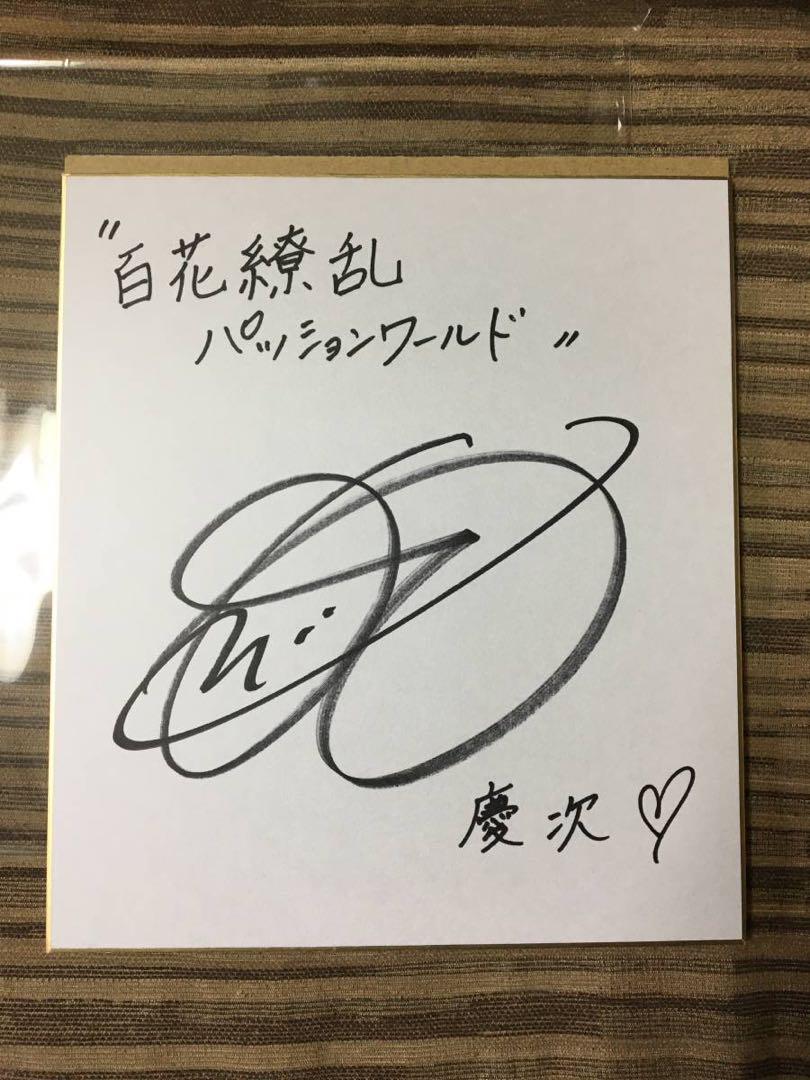 "百花繚乱
パッションワールド"
慶次♡